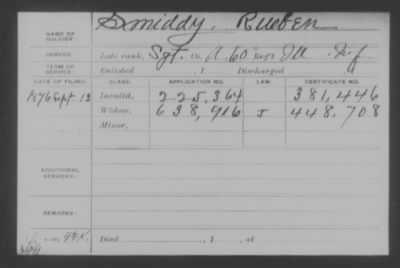 NAME OF SOLDIER: Smiddy, Rueben
SERVICE: Late rank, Sgt. Co. A. 60 Reg't Ill. Inf
TERM OF SERVICE: Enlisted , 1 Discharged , 1
DATE OF FILING. CLASS. APPLICATION NO. LAW. CERTIFICATE NO.
1876 Sept. 13 Invalid, 225,364 381,446
Widow, 638,916 J 448,708
Minor,
ADDITIONAL SERVICES:
REMARKS:
Died , 1 , at